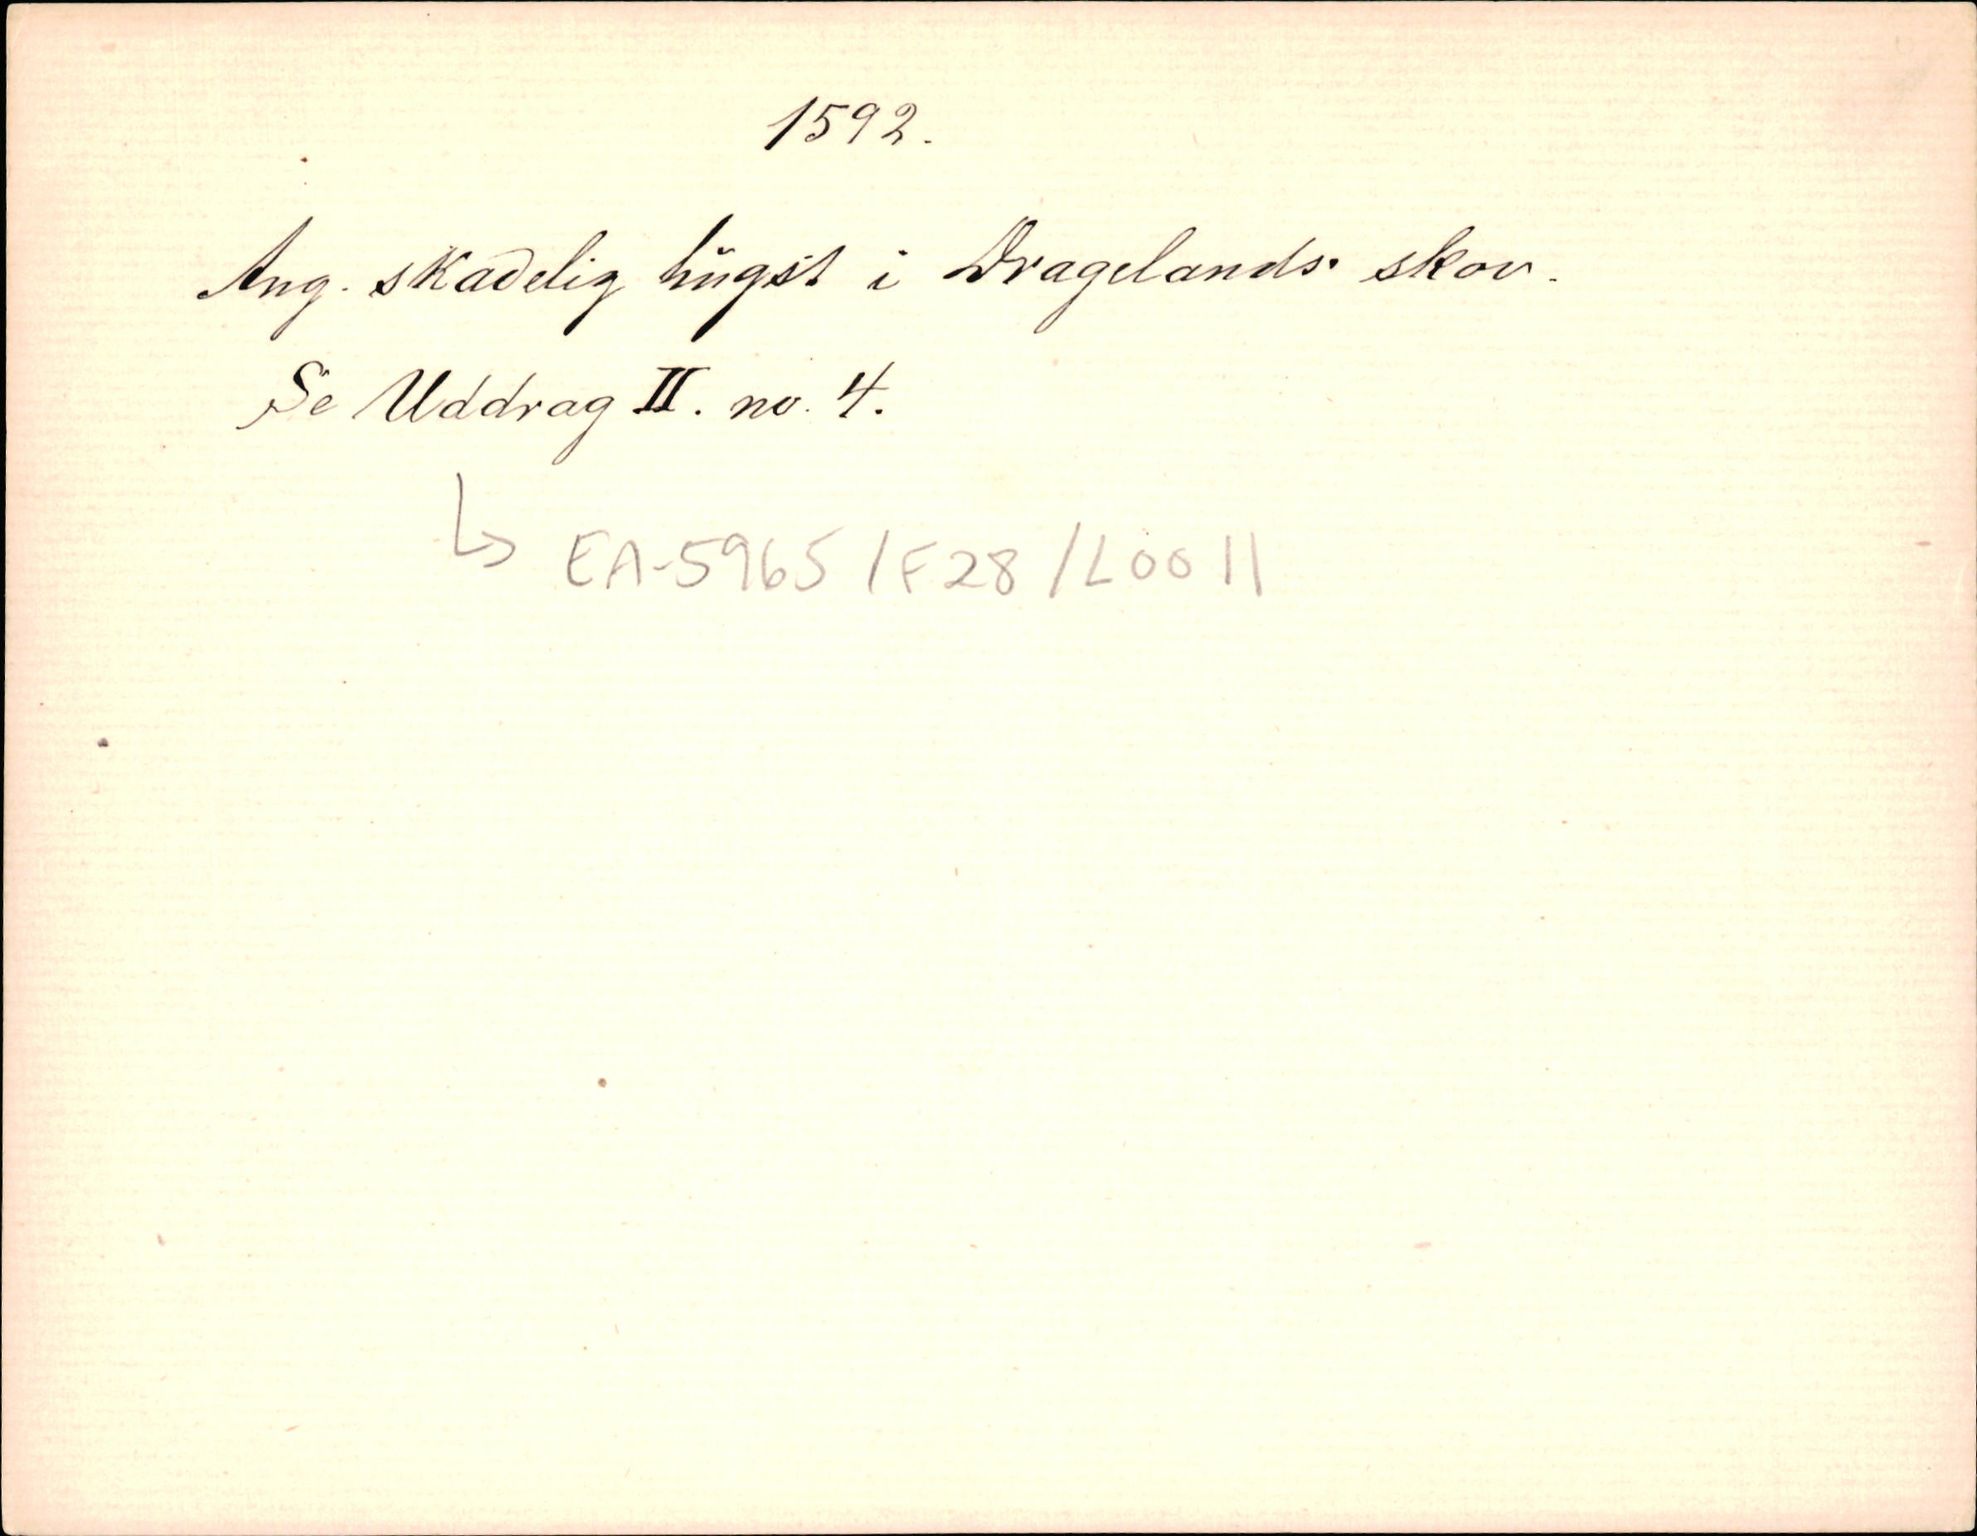 1592.
Ang. skadelig hugst i Dragelands skov.
Se Uddrag II. no. 4.
↳ EA-5965/F28/L0011